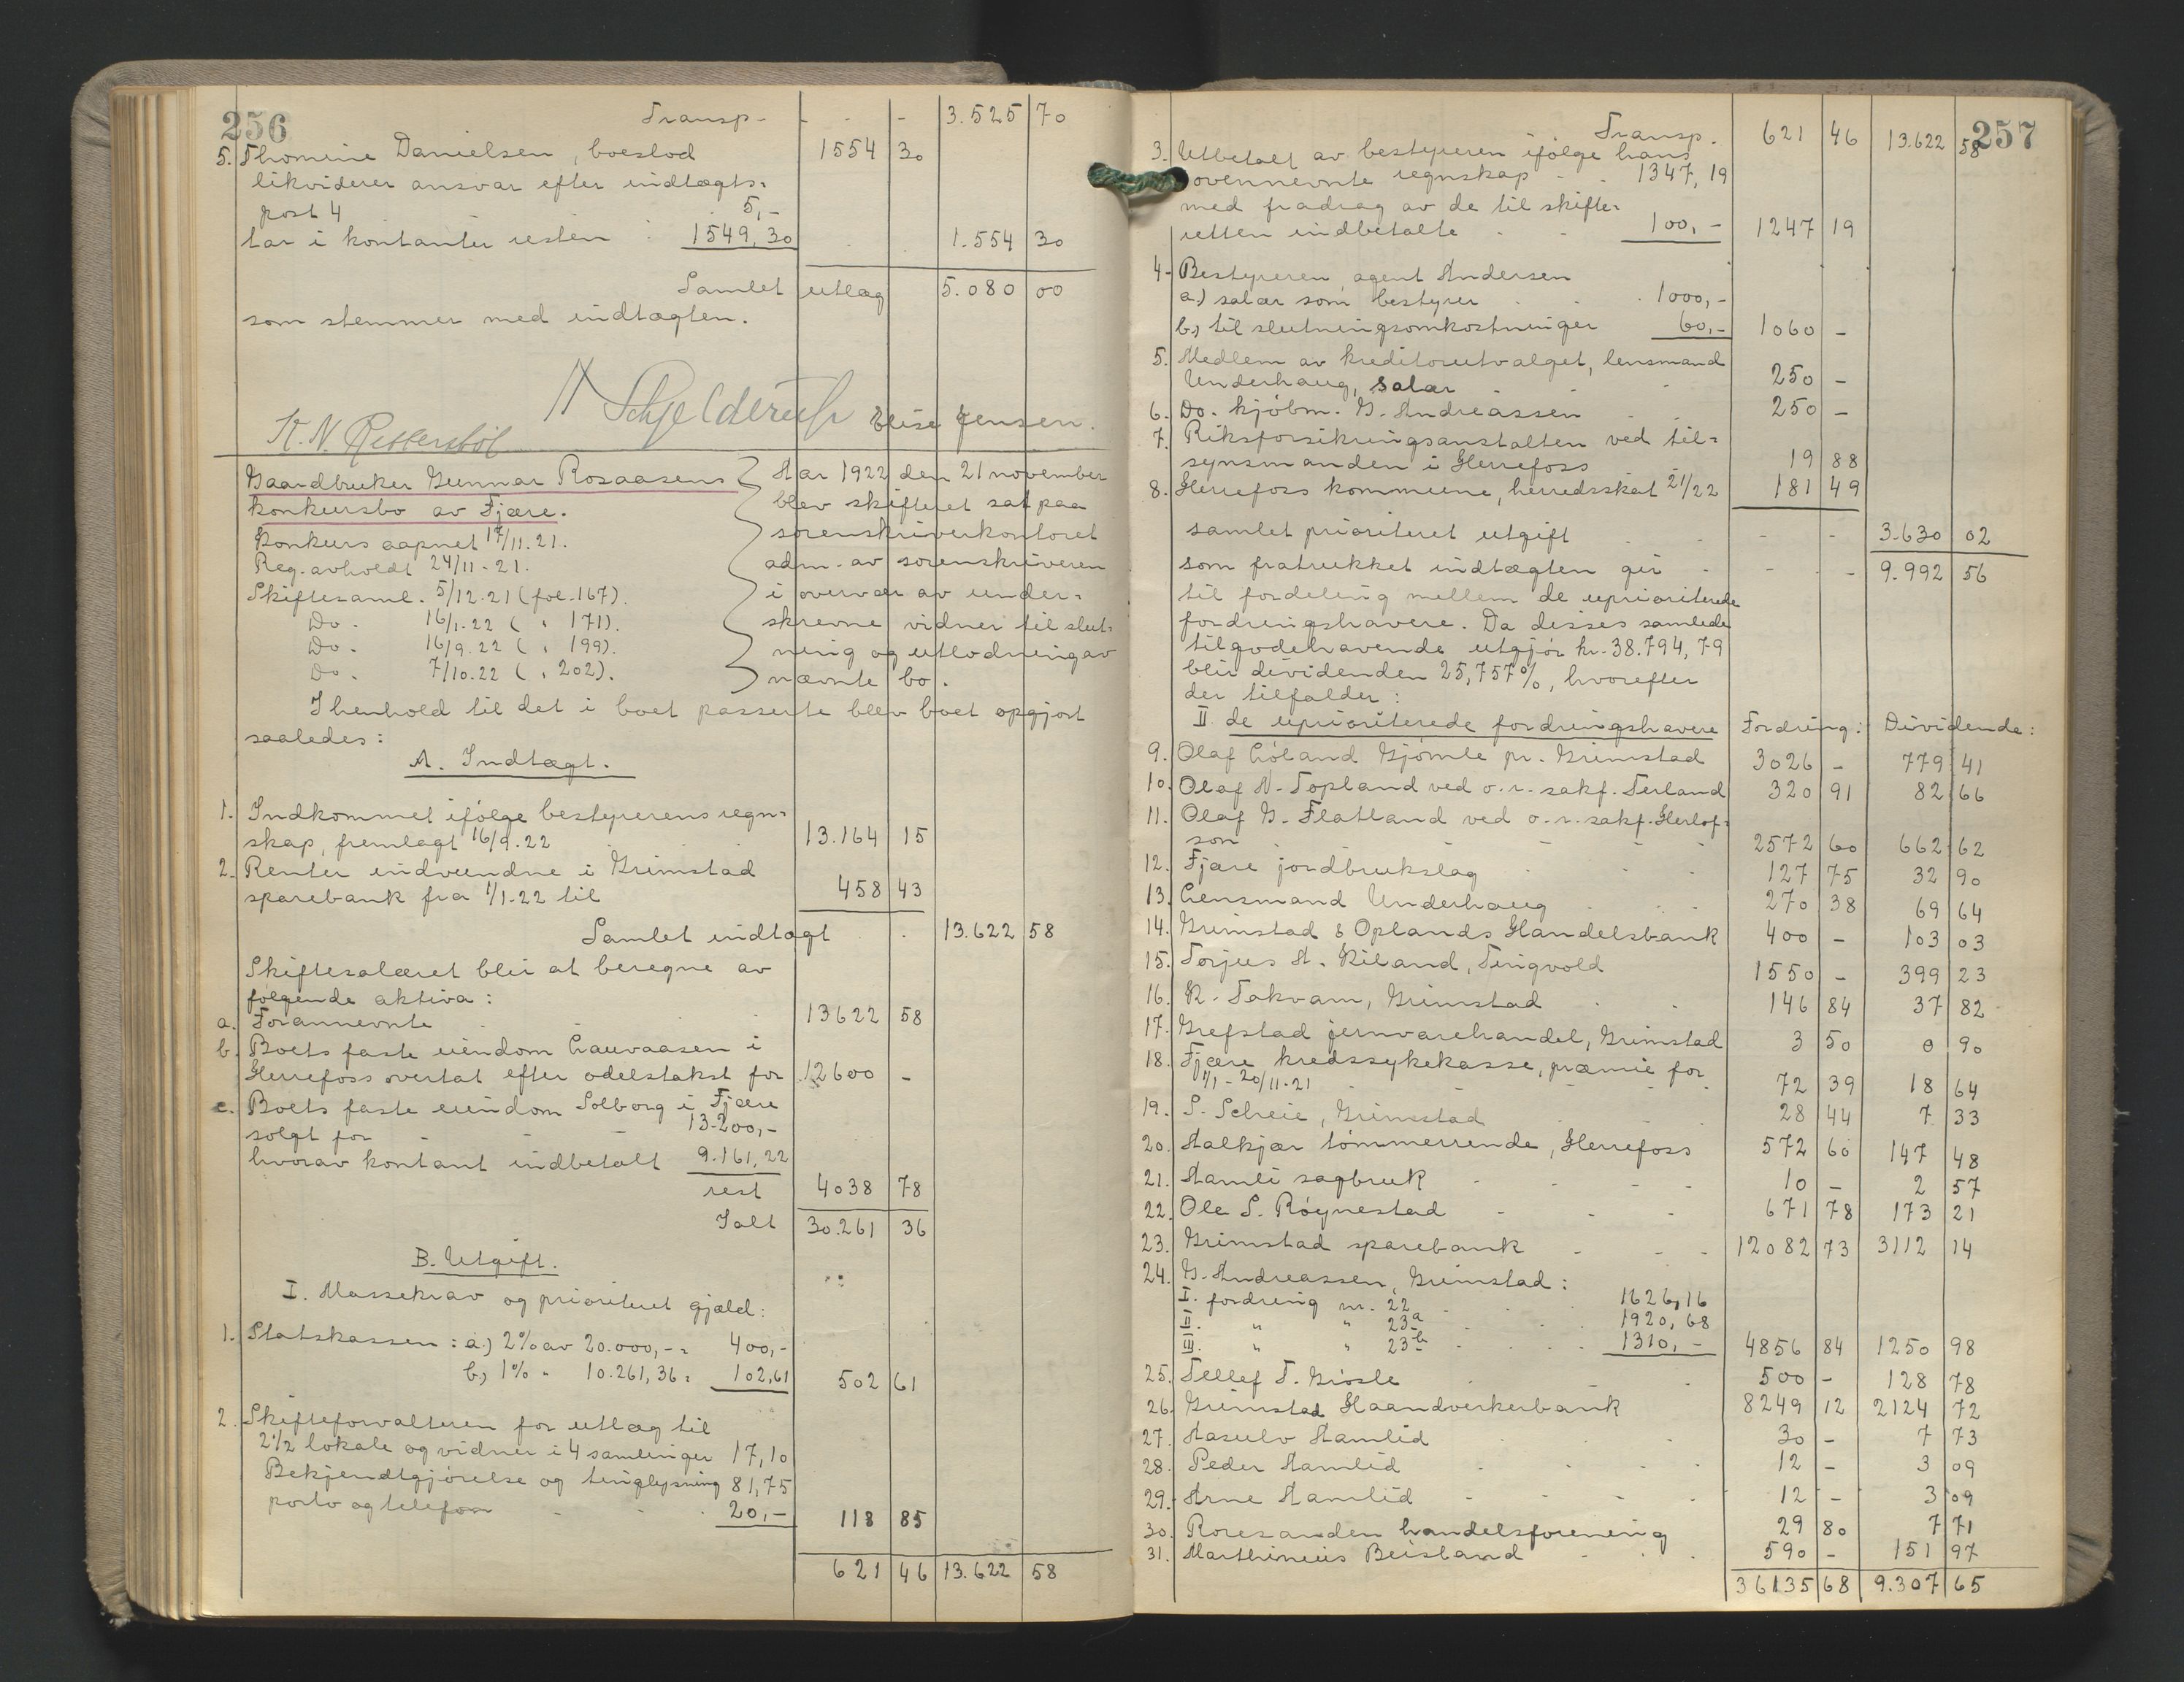 256
Transp. - - - 3.525 70
5. Thomine Danielsen, boeslod 1554 30
likviderer ansvar efter indtægts=
post 4 5,-
tar i kontanter resten 1549,30 1.554 30
Samlet utlæg 5.080 00
som stemmer med indtægten.
N Schjelderup
K. N. Rettersbøl Elise Jensen.
Gaardbruker Gunnar Rosaasens
konkursbo av Fjære.
Konkurs aapnet 17/11.21.
Reg. avholdt 24/11-21.
Skiftesaml. 5/12.21 (fol.167).
Do. 16/1.22 ( " 171).
Do. 16/9.22 ( " 199).
Do. 7/10.22 ( " 202).
Aar 1922 den 21 november
blev skifteret sat paa
sorenskriverkontoret
adm. av sorenskriveren
i overvær av under=
skrevne vidner til slut=
ning og utlodning av
nævnte bo.
I henhold til det i boet passerte blev boet opgjort
saaledes:
A. Indtægt.
1. Indkommet ifølge bestyrerens regn=
skap, fremlagt 16/9.22 13.164 15
2. Renter indvundne i Grimstad
sparebank fra 1/1-22 til 458 43
Samlet indtægt 13.622 58
Skiftesalæret blir at beregne av
følgende aktiva:
a. Forannevnte 13622 58
b. Boets faste eiendom Lauvaasen i
Herrefoss overtat efter odelstakst for 12600 -
c. Boets faste eiendom Solborg i Fjære
solgt for - - 13.200,-
hvorav kontant indbetalt 9.161,22
rest 4038 78
Ialt 30.261 36
B. Utgift.
I. Massekrav og prioritert gjæld:
1. Statskassen: a.) 2% av 20.000,- = 400,-
b.) 1% " 10.261,36 = 102,61 502 61
2. Skifteforvalteren for utlæg til
2 1/2 lokale og vidner i 4 samlinger 17,10
Bekjendtgjørelse og tinglysning 81,75
porto og telefon 20,- 118 85
621 46 13.622 58
257
Transp. 621 46 13.622 58
3. Utbetalt av bestyreren ifølge hans
ovennevnte regnskap - 1347,19
med fradrag av de til skifte=
retten indbetalte - 100,- 1247 19
4. Bestyreren, agent Andersen
a.) salær som bestyrer 1000,-
b.) til slutningsomkostninger 60,- 1060 -
5. Medlem av kreditorutvalget, lensmand
Underhaug, salær 250 -
6. Do. kjøbm. G. Andreassen 250 -
7. Riksforsikringsanstalten ved til=
synsmanden i Herrefoss 19 88
8. Herrefoss kommune, herredsskat 21/22 181 49
samlet prioritert utgift - - 3.630 02
som fratrukket indtægten gir - - 9.992 56
til fordeling mellem de uprioriterede
fordringshavere. Da disses samlede
tilgodehavende utgjør kr. 38.794,79
blir dividenden 25,757%, hvorefter
der tilfalder:
II. de uprioriterede fordringshavere Fordring: Dividende:
9. Olaf Løland Gjømle pr. Grimstad 3026 - 779 41
10. Olaf N. Topland ved o.r.sakf. Terland 320 91 82 66
11. Olaf G. Flatland ved o.r.sakf. Herlof=
son 2572 60 662 62
12. Fjære jordbrukslag 127 75 32 90
13. Lensmand Underhaug 270 38 69 64
14. Grimstad & Oplands Handelsbank 400 - 103 03
15. Torjus A. Kiland, Tingvold 1550 - 399 23
16. K. Takvam, Grimstad 146 84 37 82
17. Grefstad jernvarehandel, Grimstad 3 50 0 90
18. Fjære kredssykekasse, præmie for
1/1 - 20/11-21 72 39 18 64
19. S. Scheie, Grimstad 28 44 7 33
20. Aalkjær tømmerrende, Herrefoss 572 60 147 48
21. Hamli sagbruk 10 - 2 57
22. Ole S. Røynestad 671 78 173 21
23. Grimstad sparebank 12082 73 3112 14
24. G. Andreassen, Grimstad:
I. fordring nr. 22 1626,16
II. " " 23a 1920,68
III. " " 23b 1310,- 4856 84 1250 98
25. Tellef T. Grøsle 500 - 128 78
26. Grimstad Haandverkerbank 8249 12 2124 72
27. Aasulv Aamlid 30 - 7 73
28. Peder Aamlid 12 - 3 09
29. Arne Aamlid 12 - 3 09
30. Roresanden handelsforening 29 80 7 71
31. Marthinius Beisland 590 - 151 97
36135 68 9.307 65